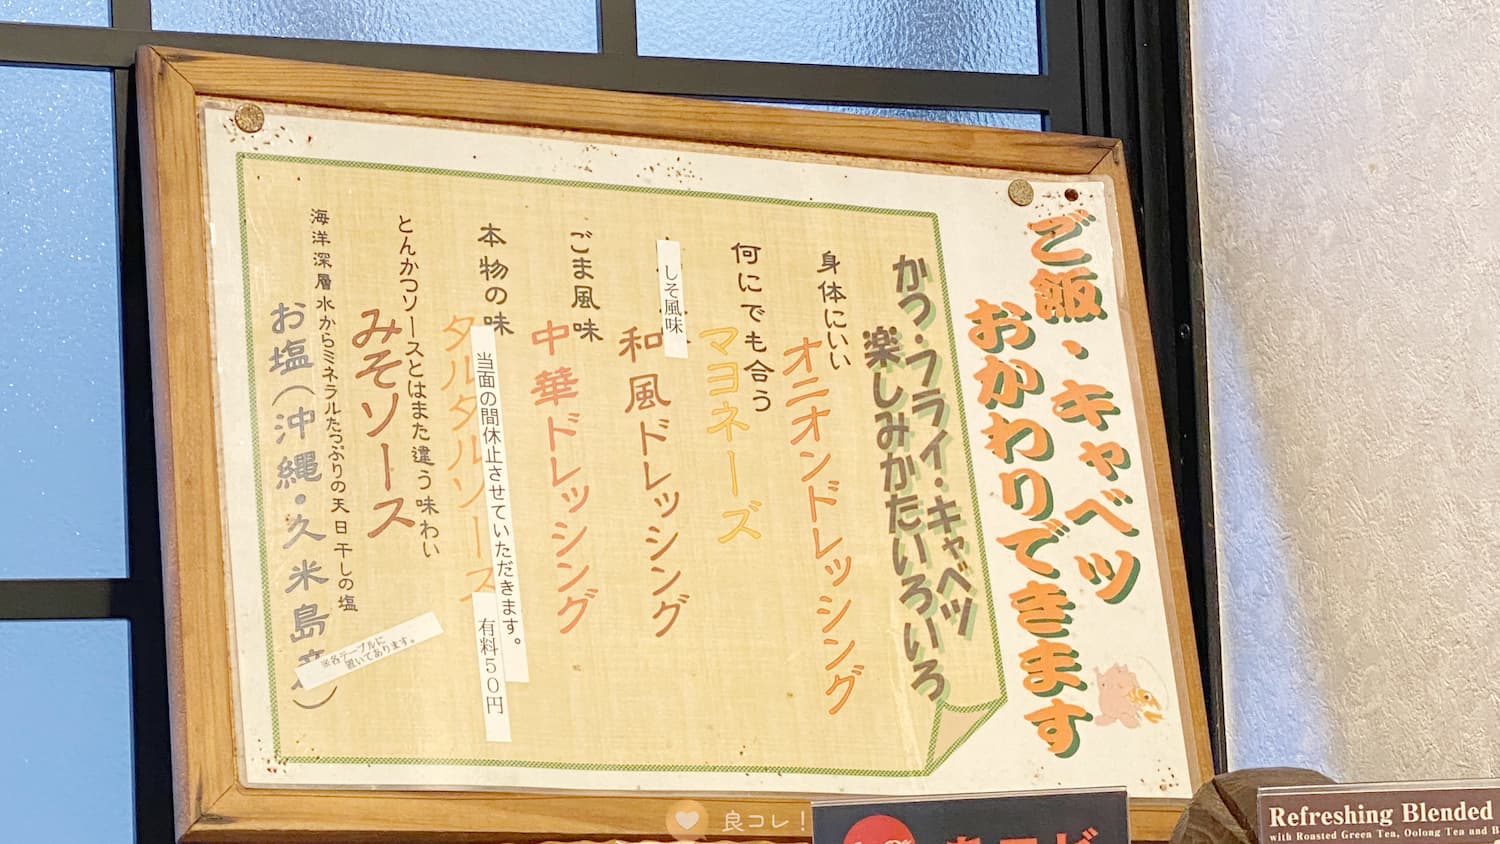 ご飯・キャベツ
おかわりできます
かつ・フライ・キャベツ
楽しみかたいろいろ
身体にいい
オニオンドレッシング
何にでも合う
マヨネーズ
しそ風味
和風ドレッシング
ごま風味
中華ドレッシング
本物の味
タルタルソース
当面の間休止させていただきます。
有料50円
とんかつソースとはまた違う味わい
みそソース
海洋深層水からミネラルたっぷりの天日干しの塩
お塩(沖縄・久米島)
※各テーブルに
置いてあります。
良コレ!
Refreshing Blended
with Roasted Green Tea, Oolong Tea and